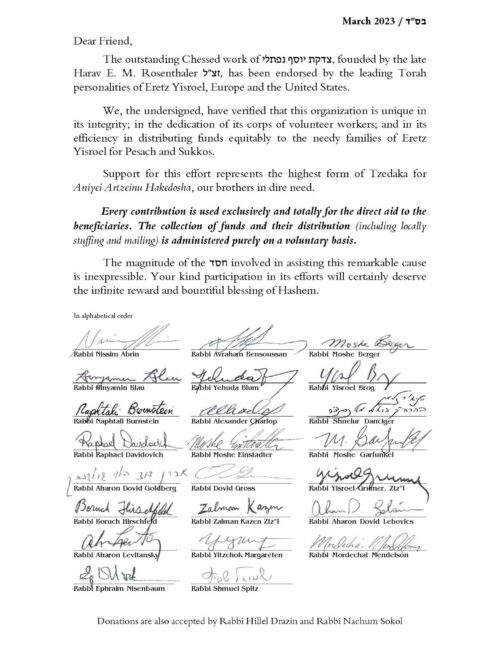 March 2023 / בס"ד
Dear Friend,
The outstanding Chessed work of צדקת יוסף נפתלי, founded by the late
Harav E. M. Rosenthaler זצ"ל, has been endorsed by the leading Torah
personalities of Eretz Yisroel, Europe and the United States.
We, the undersigned, have verified that this organization is unique in
its integrity; in the dedication of its corps of volunteer workers; and in its
efficiency in distributing funds equitably to the needy families of Eretz
Yisroel for Pesach and Sukkos.
Support for this effort represents the highest form of Tzedaka for
Aniyei Artzeinu Hakedosha, our brothers in dire need.
Every contribution is used exclusively and totally for the direct aid to the
beneficiaries. The collection of funds and their distribution (including locally
stuffing and mailing) is administered purely on a voluntary basis.
The magnitude of the חסד involved in assisting this remarkable cause
is inexpressible. Your kind participation in its efforts will certainly deserve
the infinite reward and bountiful blessing of Hashem.
In alphabetical order
Moshe Berger
Rabbi Nissim Abrin Rabbi Avraham Bensoussan Rabbi Moshe Berger
Binyamin Blau Yehuda
Rabbi Binyamin Blau Rabbi Yehuda Blum Rabbi Yisroel Brog
Naphtali Burnstein
Rabbi Naphtali Burnstein Rabbi Alexander Charlop Rabbi Shneiur Danciger
Raphael Davidovich Moshe Einstadter M. Garfunkel
Rabbi Raphael Davidovich Rabbi Moshe Einstadter Rabbi Moshe Garfunkel
Yisroel Grumer
Rabbi Aharon Dovid Goldberg Rabbi Dovid Gross Rabbi Yisroel Grumer, Ztz"l
Boruch Hirschfeld Zalman Kazen
Rabbi Boruch Hirschfeld Rabbi Zalman Kazen Ztz"l Rabbi Aharon Dovid Lebovics
Rabbi Aharon Levitansky Rabbi Yitzchok Margareten Rabbi Mordechai Mendelson
Rabbi Ephraim Nisenbaum Rabbi Shmuel Spitz
Donations are also accepted by Rabbi Hillel Drazin and Rabbi Nachum Sokol